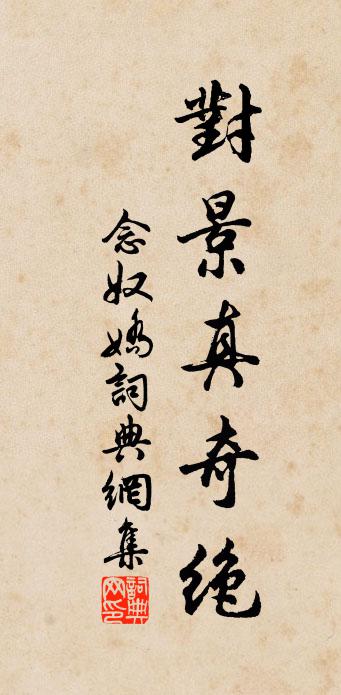 對景真奇絶
念奴嬌詞典網集
詞典
网印